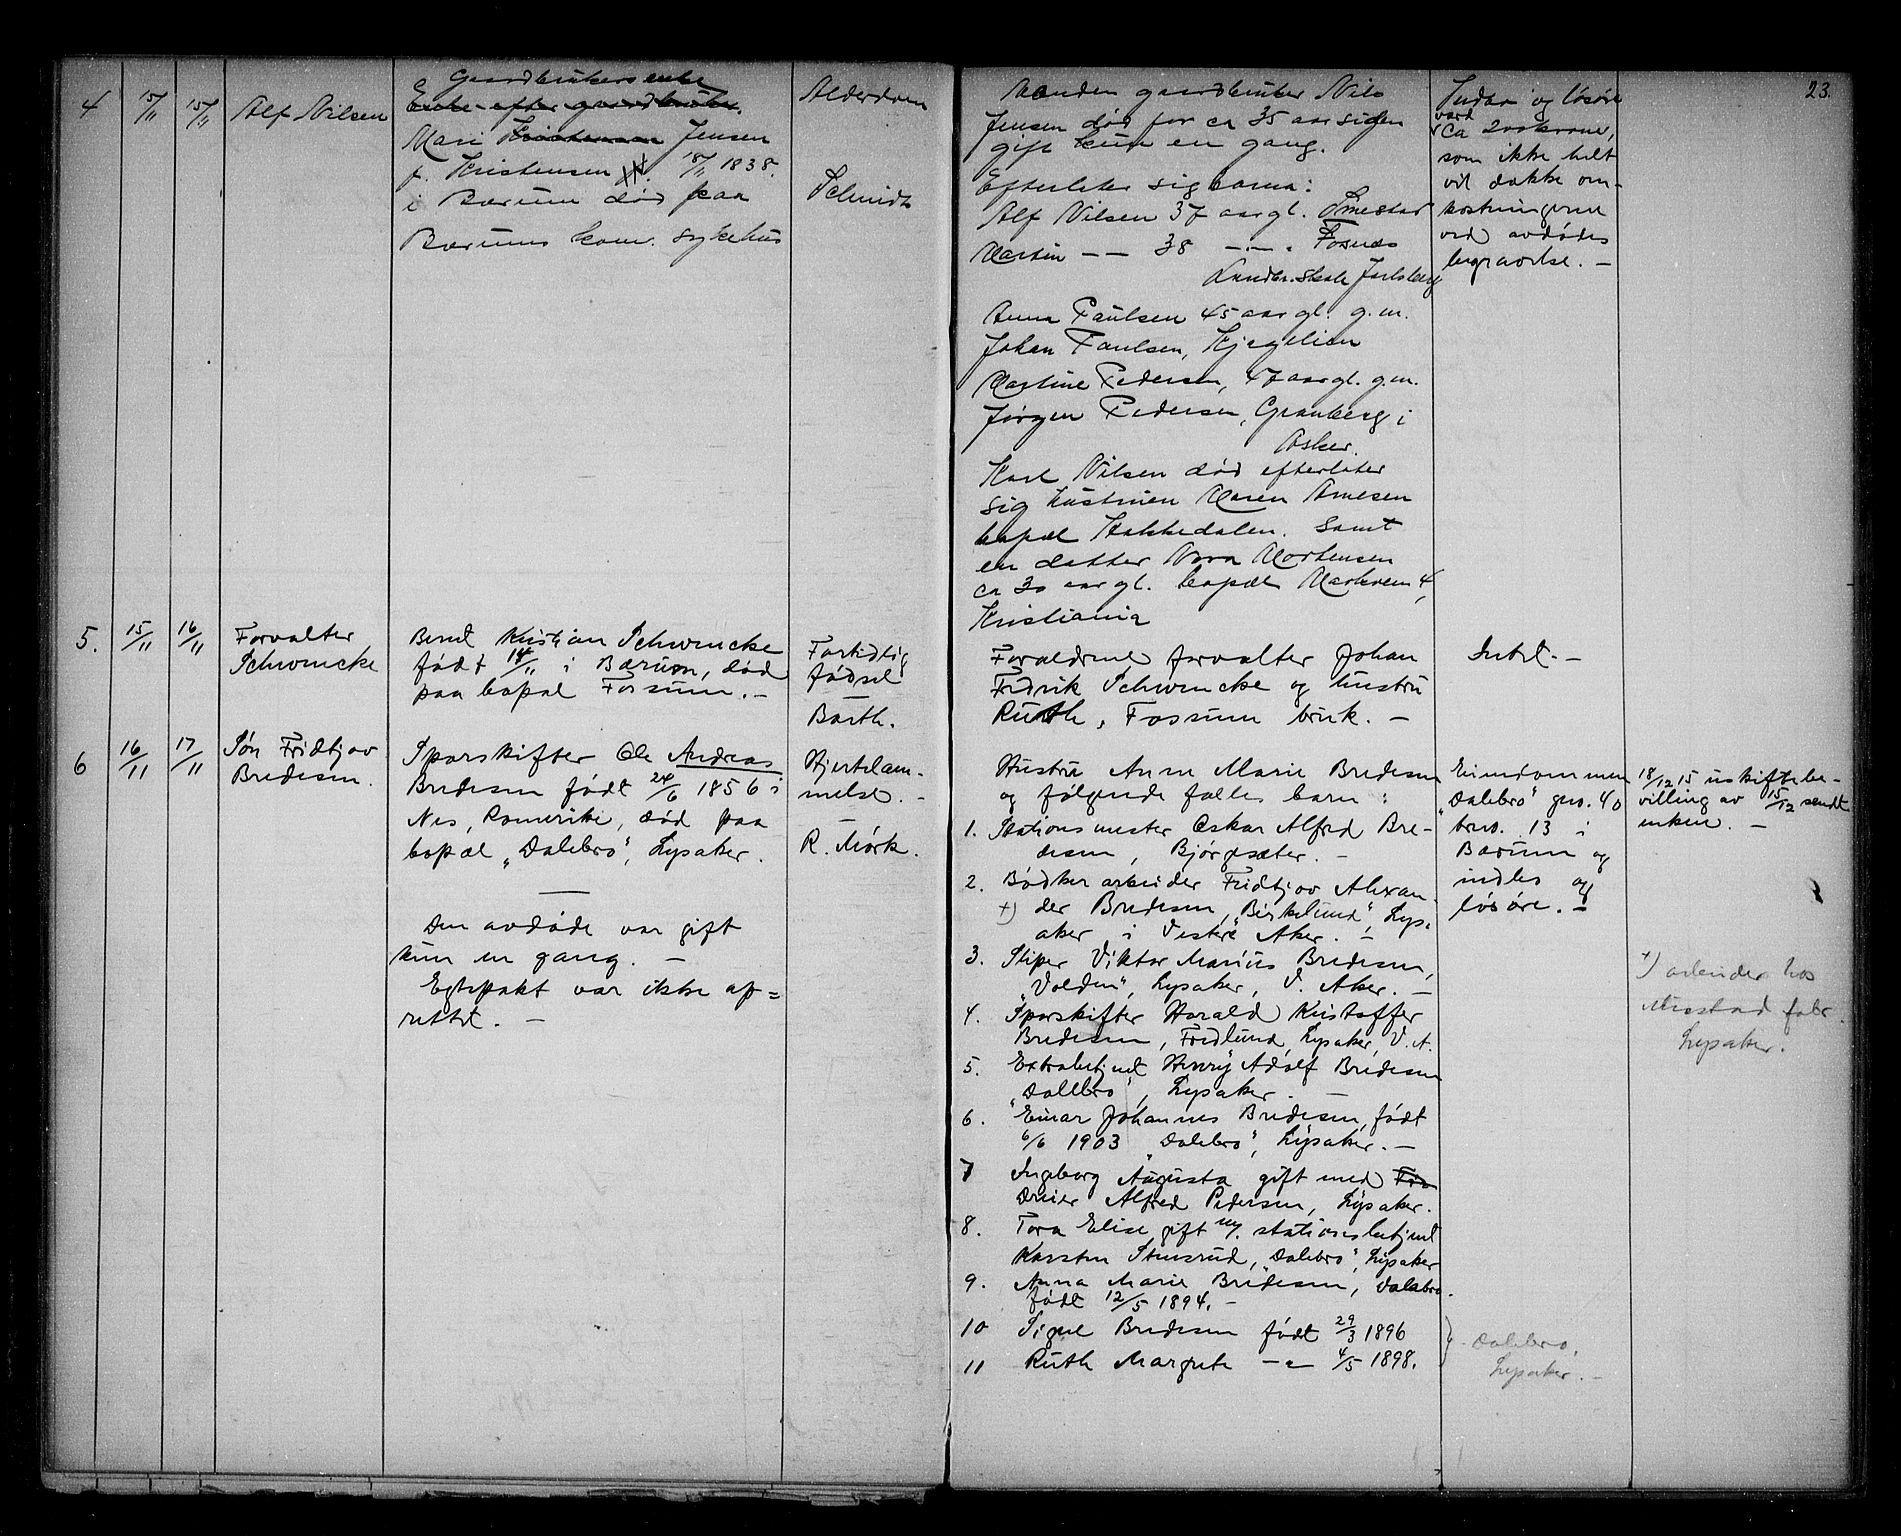 23.
4
15/11
15/11
Alf Nilsen
Gaardbrukerenke
Enke efter gaardbruker
Mari Kristensen Jensen
f. Kristensen 18/11 1838.
i Bærum død paa
Bærums kom. sykehus
Alderdom
Schmidt
Manden gaardbruker Nils
Jensen død for ca 35 aar siden
gift kun en gang.
Efterlater sig barna:
Alf Nilsen 37 aar gl.
Martin — — 38 — " — Fosnæs
Landbr. skole Jarlsberg
Anna Paulsen 45 aar gl. g.m.
Johan Paulsen,
Martine Pedersen, 47 aar gl. g.m.
Jørgen Pedersen, Granberg i
Asker.
Karl Nilsen død efterlater
sig hustruen Maren Arnesen
bopæl Hakkedalen. Samt
en datter Nora Mortensen
ca 30 aar gl. bopæl Markvein 4,
Kristiania
Indbo og løsøre
værd
ca 200 kroner,
som ikke helt
vil dække om-
kostningerne
ved avdødes
begravelse. —
5.
15/11
16/11
Forvalter
Schwencke
Bernt Kristian Schwencke
født 14/11 i Bærum, død
paa bopæl Fossum. —
Fortidlig
fødsel
—
Barth.
Forældrene, forvalter Johan
Fredrik Schwencke og hustru
Ruth, Fossum bruk. —
Intet. —
6
16/11
17/11
Søn Fridtjov
Bredesen.
Sporskifter Ole Andreas
Bredesen født 24/6 1856 i
Nes, Romerike, død paa
bopæl „Dalebro", Lysaker.
—
Den avdøde var gift
kun en gang. —
Egtepakt var ikke op=
rettet. —
Hjertelam-
melse. —
—
R. Mørk.
Hustru Anne Marie Bredesen
og følgende fælles barn:
1. Stationsmester Oskar Alfred Bre-
desen, Bjørgesæter. —
2. Bødkerarbeider Fridtjov Alexan-
+) der Bredesen, „Birkelund", Lys-
aker i Vestre Aker. —
3. Sliper Viktor Marius Bredesen,
„Volden", Lysaker, V. Aker. —
4. Sporskifter Harald Kristoffer
Bredesen, Fredlund, Lysaker, V. A.
5. Extrabetjent Henry Adolf Bredesen
„Dalebro", Lysaker. —
6. Einar Johannes Bredesen, født
6/6 1903 „Dalebro", Lysaker. —
7 Ingeborg Augusta gift med Fre
Dreier Alfred Pedersen, Lysaker.
8. Tora Elise gift m/. stationsbetjent
Karsten Stensrud, „Dalebro", Lysaker
9. Anna Marie Bredesen, Dalebro.
født 12/5 1894. —
10 Signe Bredesen født 29/3 1896
11 Ruth Margrete — " — 4/5 1898.
Dalebro,
Lysaker. —
Eiendommen
„Dalebro" gno. 40
brno. 13 i
Bærum og
indbo og
løsøre. —
18/12 15 uskiftebe-
villing av 15/12 sendt
enken. —
+) arbeider hos
Mustad fabr.
Lysaker.